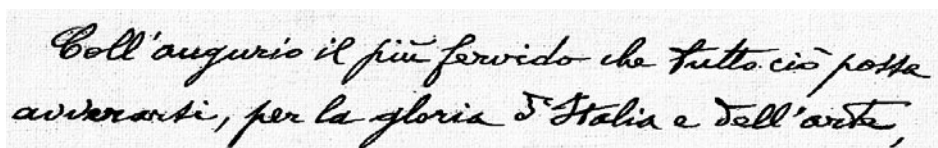 Coll'augurio il più fervido che tutto ciò possa
avverarsi, per la gloria d'Italia e dell'arte,